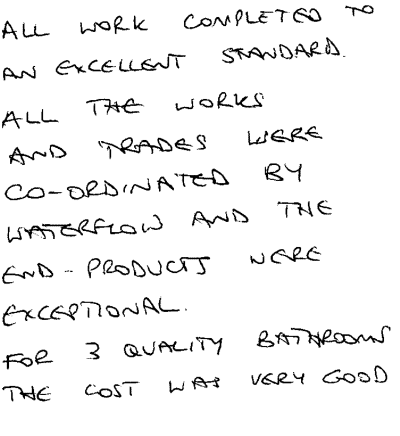 ALL WORK COMPLETED TO
AN EXCELLENT STANDARD.
ALL THE WORKS
AND TRADES WERE
CO-ORDINATED BY
WATERFLOW AND THE
END-PRODUCTS WERE
EXCEPTIONAL.
FOR 3 QUALITY BATHROOMS
THE COST WAS VERY GOOD